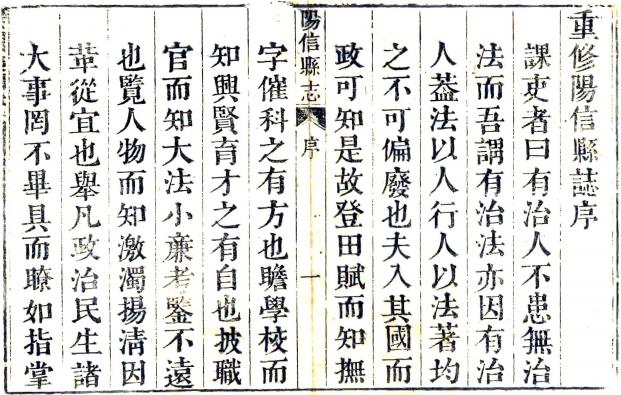 重修陽信縣誌序
課吏者曰有治人不患無治
法而吾謂有治法亦因有治
人葢法以人行人以法著均
之不可偏廢也夫入其國而
政可知是故登田賦而知撫
陽信縣志 序 一
字催科之有方也瞻學校而
知興賢育才之有自也披職
官而知大法小亷考鑒不遠
也覽人物而知激濁揚清因
革從宜也舉凡政治民生諸
大事罔不畢具而瞭如指掌